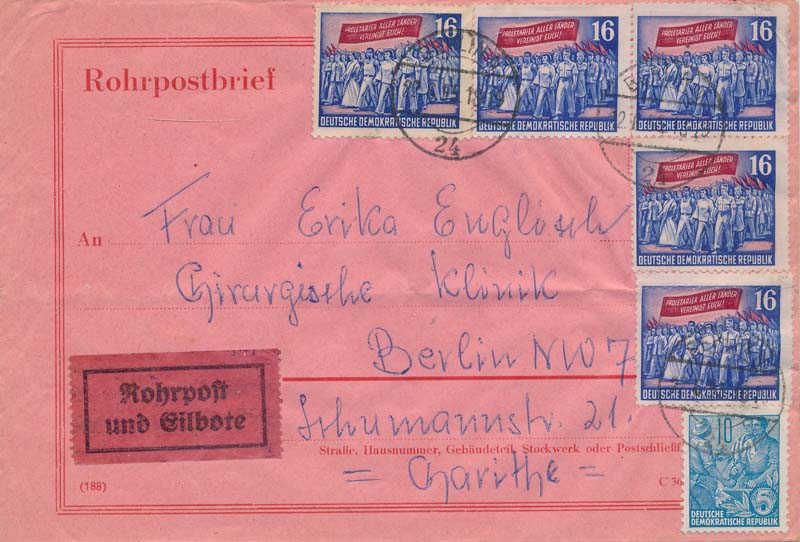 Rohrpostbrief
16
PROLETARIER ALLER LÄNDER
VEREINIGT EUCH!
DEUTSCHE DEMOKRATISCHE REPUBLIK
16
PROLETARIER ALLER LÄNDER
VEREINIGT EUCH!
DEUTSCHE DEMOKRATISCHE REPUBLIK
16
PROLETARIER ALLER LÄNDER
VEREINIGT EUCH!
DEUTSCHE DEMOKRATISCHE REPUBLIK
24
16
PROLETARIER ALLER LÄNDER
VEREINIGT EUCH!
DEUTSCHE DEMOKRATISCHE REPUBLIK
An Frau Erika Englisch
Chirurgische Klinik
16
PROLETARIER ALLER LÄNDER
VEREINIGT EUCH!
DEUTSCHE DEMOKRATISCHE REPUBLIK
Berlin NW 7
Rohrpost
und Eilbote
Schumannstr. 21.
Straße, Hausnummer, Gebäudeteil, Stockwerk oder Postschließf.
= Charithe =
(188)
C 36
10
5
DEUTSCHE
DEMOKRATISCHE REPUBLIK